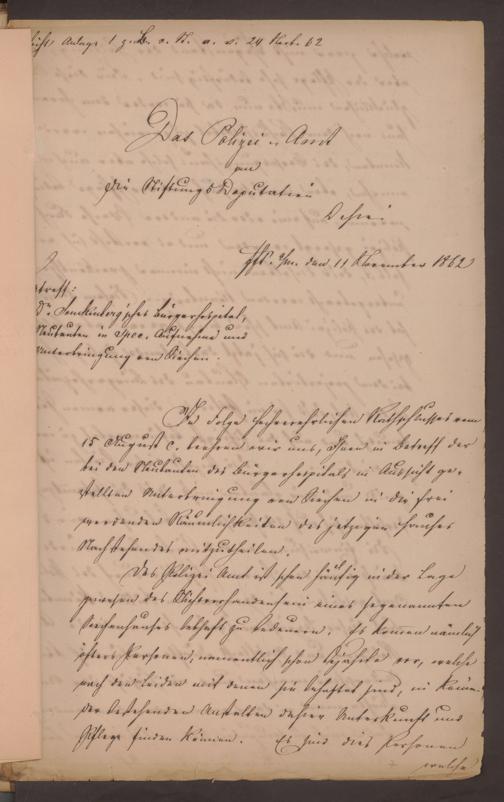 Anlage 1 z. B. d. N. a. v. 24 Novb. 62
Das Polizei-Amt
an
die Stiftungs Deputation
Dahier.
Ffk. a/m. den 11 November 1862
Betreff:
Dr. Senckenberg'sches Bürgerhospital,
Neubauten in spec. Aufnahme und
Unterbringung von Siechen.
In Folge hochverehrlichen Rathschlusses vom
15 August c. beehren wir uns, Ihnen in Betreff der
bei den Neubauten des Bürgerhospitals in Aussicht ge-
stellten Unterbringung von Siechen in die frei
werdenden Räumlichkeiten des jetzigen Hauses
Nachstehendes mitzutheilen.
Das Polizei Amt ist schon häufig in der Lage
gewesen das Nichtvorhandensein eines sogenannten
Siechenhauses lebhaft zu bedauern. Es kommen nämlich
öfters Personen, namentlich schon bejahrte vor, welche
nach den Leiden mit denen sie behaftet sind, in keiner
der bestehenden Anstalten dahier Unterkunft und
Pflege finden können. Es sind dies Personen
welche